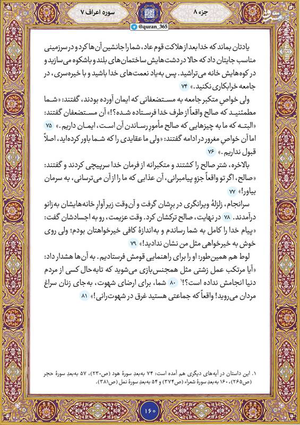 جزء ۸
سوره اعراف ۷
@quran_365
یادتان بماند که خدا بعد از هلاکت قوم عاد، شما را جانشین آن‌ها کرد و در سرزمینی
مناسب جایتان داد که حالا در دشت‌هایش ساختمان‌های بلند و باشکوه می‌سازید و
در کوه‌هایش خانه می‌تراشید. پس به‌یاد نعمت‌های خدا باشید و با خیره‌سری، در
جامعه خرابکاری نکنید.» ۷۴
ولی خواصِ متکبرِ جامعه به مستضعفانی که ایمان آورده بودند، گفتند: «شما
مطمئنید که صالح واقعاً از طرف خدا فرستاده شده؟!» آن مستضعفان گفتند:
«البته که ما به چیزهایی که صالح مأمورِ رساندن آن است، ایمان داریم.» ۷۵
اما آن خواصِ مغرور در ادامه گفتند: «ولی ما عقایدی را که شما باور کرده‌اید، اصلاً
قبول نداریم.» ۷۶
بالاخره، شترِ صالح را کشتند و متکبرانه از فرمان خدا سرپیچی کردند و گفتند:
«صالح، اگر تو واقعاً جزو پیامبرانی، آن عذابی که ما را از آن می‌ترسانی، به سرمان
بیاور!» ۷۷
سرانجام، زلزلهٔ ویرانگری در برِشان گرفت و آن‌وقت زیر آوار خانه‌هایشان به‌زانو
درآمدند. ۷۸ در نهایت، صالح ترکشان کرد. وقت عزیمت، رو به اجسادشان گفت:
«پیام خدا را کامل به شما رساندم و به‌اندازهٔ کافی خیرخواهتان بودم؛ ولی روی
خوش به خیرخواهی مثل من نشان ندادید!» ۷۹
لوط هم همین‌طور: او را برای راهنمایی قومش فرستادیم. به آن‌ها هشدار داد:
«آیا مرتکب عمل زشتی مثل همجنس‌بازی می‌شوید که تابه‌حال کسی از مردم
دنیا انجامش نداده است؟!¹ ۸۰ شما، برای ارضای شهوت، به‌جای زنان سراغ
مردان می‌روید! واقعاً که جماعتی هستید غرق در شهوت‌رانی!» ۸۱
۱. این داستان در آیه‌های دیگری هم آمده است: ۷۴ به‌بعدِ سورهٔ هود (ص۲۳۰)، ۵۷ به‌بعدِ سورهٔ حجر
(ص۲۶۵)، ۱۶۰ به‌بعدِ سورهٔ شعراء (ص۳۷۴) و ۵۴ به‌بعدِ سورهٔ نمل (ص۳۸۱).
۱۶۰